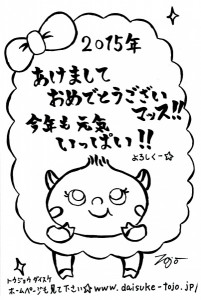 2015年
あけまして
おめでとうござい
マッス!!
今年も元気
いっぱい!!
よろしくー☆
Tojo
トウジョウダイスケ
ホームページも見て下さい☆www.daisuke-tojo.jp/